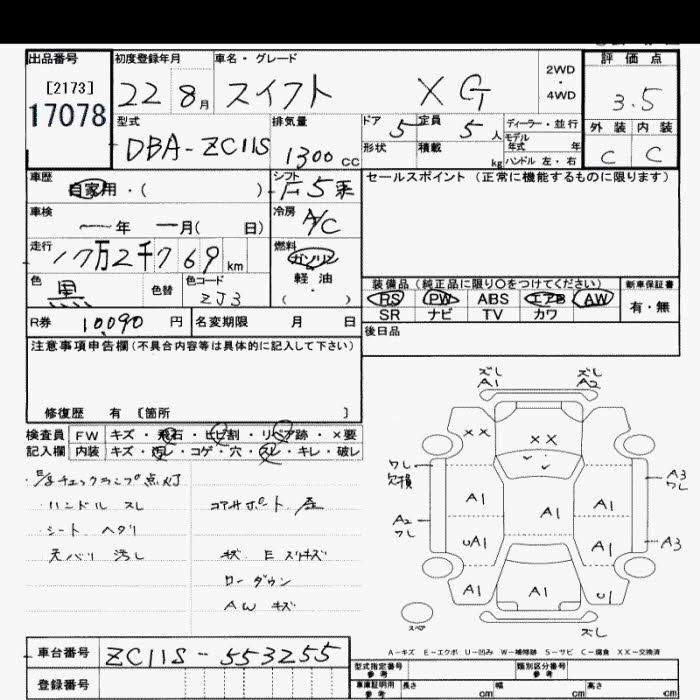 出品番号 初度登録年月 車名・グレード 2WD・4WD 評価点
[2173]
17078 22 8月 スイフト XG 3.5
型式 排気量 ドア 5 定員 5人 ディーラー・並行 外装 内装
モデル年式 年
DBA-ZC11S 1300cc 形状 積載 kg ハンドル 左・右 C C
車歴 シフト セールスポイント (正常に機能するものに限ります)
自家用・( ) F5
車検 冷房
年 月( 日) A/C
走行 燃料
17万2千769km ガソリン
軽油
( )
色 色替 色コード 装備品 (純正品に限り○をつけてください) 新車保証書
黒 ZJ3 RS PW ABS エアB AW 有・無
SR ナビ TV カワ
R券 10,090円 名変期限 月 日 後日品
注意事項申告欄(不具合内容等は具体的に記入して下さい)
修復歴 有 〔箇所 〕
検査員 FW キズ・飛石・ヒビ割・リペア跡・×要
記入欄 内装 キズ・汚レ・コゲ・穴・スレ・キレ・破レ
チェックランプ点灯
・ハンドル スレ コアサポート
・シート ヘタリ
天バリ 汚レ キズ E スリキズ
ローダウン
AW キズ
ズレ A1 ズレ A2
×× ××
ワレ 欠損 A3 ワレ
A1 A1 A1
A2 ワレ UA1 A1 A3
A1 A1 U1
スペア ズレ
A-キズ E-エクボ U-凹み W-補修跡 S-サビ C-腐食 XX-交換済
車台番号 ZC11S-553255
型式指定番号 参考 類別区分番号 参考
登録番号 車庫証明用 参考 長さ cm 幅 cm 高さ cm